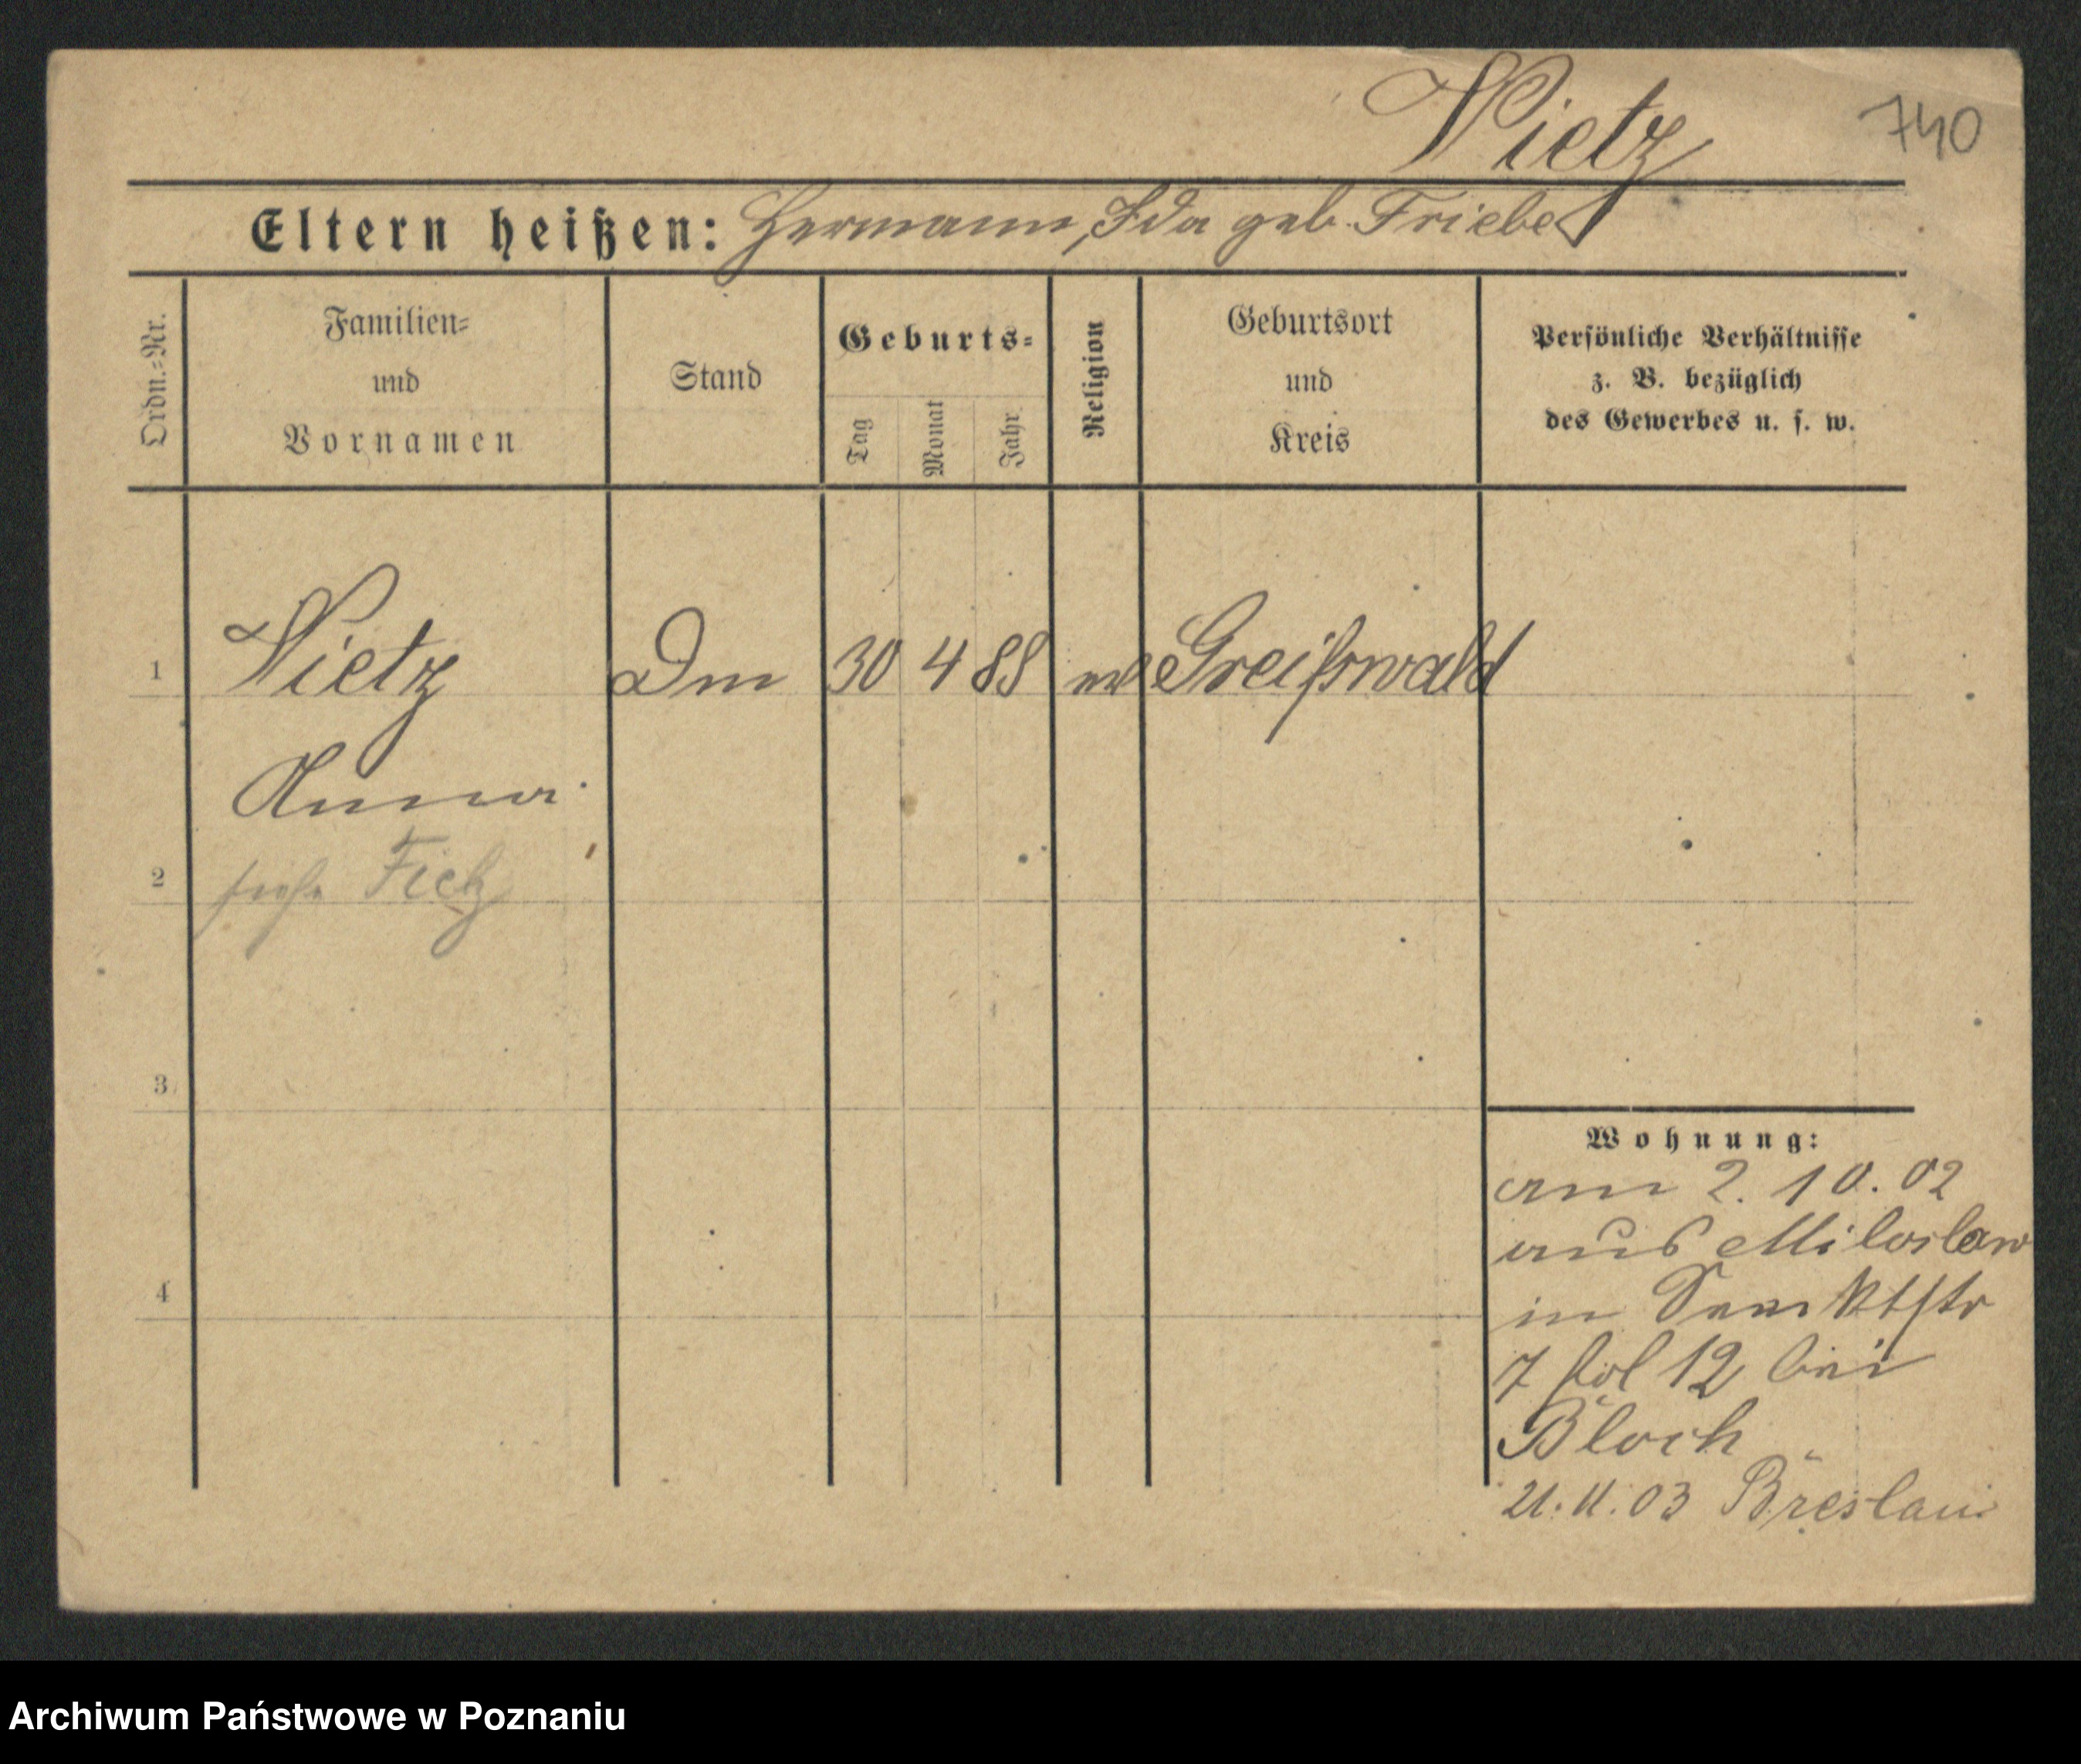 Vietz
740
Eltern heißen: Hermann, Ida geb. Friebel
Ordn.=Nr.
Familien=
und
Vornamen
Stand
Geburts=
Tag
Monat
Jahr
Religion
Geburtsort
und
Kreis
Persönliche Verhältnisse
z. B. bezüglich
des Gewerbes u. s. w.
1 Vietz Dm 30 4 88 ev Greifswald
Anna
2 siehe Fietz
3
4
Wohnung:
am 2. 10. 02
aus Miloslaw
in
7 bei
Bloch
21. 11. 03 Breslau
Archiwum Państwowe w Poznaniu